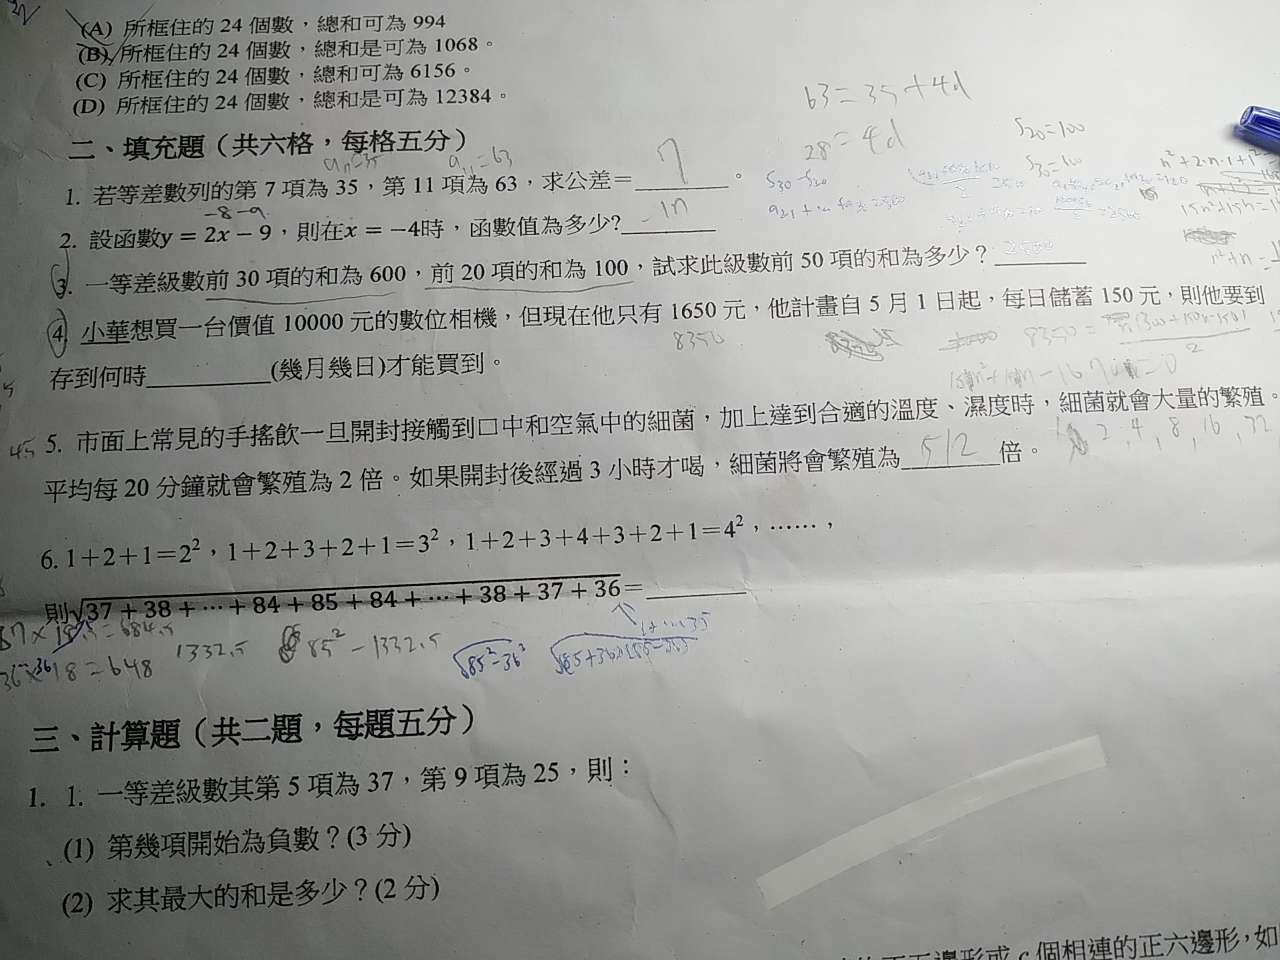 (A) 所框住的 24 個數，總和可為 994
(B) 所框住的 24 個數，總和是可為 1068。
(C) 所框住的 24 個數，總和可為 6156。
(D) 所框住的 24 個數，總和是可為 12384。
63=35+4d
28=4d
S20=100
二、填充題（共六格，每格五分）
a11=63
1. 若等差數列的第 7 項為 35，第 11 項為 63，求公差＝ 7 。
-8-9
2. 設函數y = 2x − 9，則在x = −4時，函數值為多少? -17
3. 一等差級數前 30 項的和為 600，前 20 項的和為 100，試求此級數前 50 項的和為多少？ 2500
4. 小華想買一台價值 10000 元的數位相機，但現在他只有 1650 元，他計畫自 5 月 1 日起，每日儲蓄 150 元，則他要到
8350
存到何時 (幾月幾日)才能買到。
5. 市面上常見的手搖飲一旦開封接觸到口中和空氣中的細菌，加上達到合適的溫度、濕度時，細菌就會大量的繁殖。
45
2, 4, 8, 16, 32
平均每 20 分鐘就會繁殖為 2 倍。如果開封後經過 3 小時才喝，細菌將會繁殖為 512 倍。
6. 1＋2＋1＝2²，1＋2＋3＋2＋1＝3²，1＋2＋3＋4＋3＋2＋1＝4²，……，
則√37 + 38 + ⋯ + 84 + 85 + 84 + ⋯ + 38 + 37 + 36＝
1+...35
37×18.5=684.5
1332.5
85²-1332.5
√85²-36²
36×18=648
三、計算題（共二題，每題五分）
1. 1. 一等差級數其第 5 項為 37，第 9 項為 25，則：
(1) 第幾項開始為負數？(3 分)
(2) 求其最大的和是多少？(2 分)
個相連的正六邊形，如